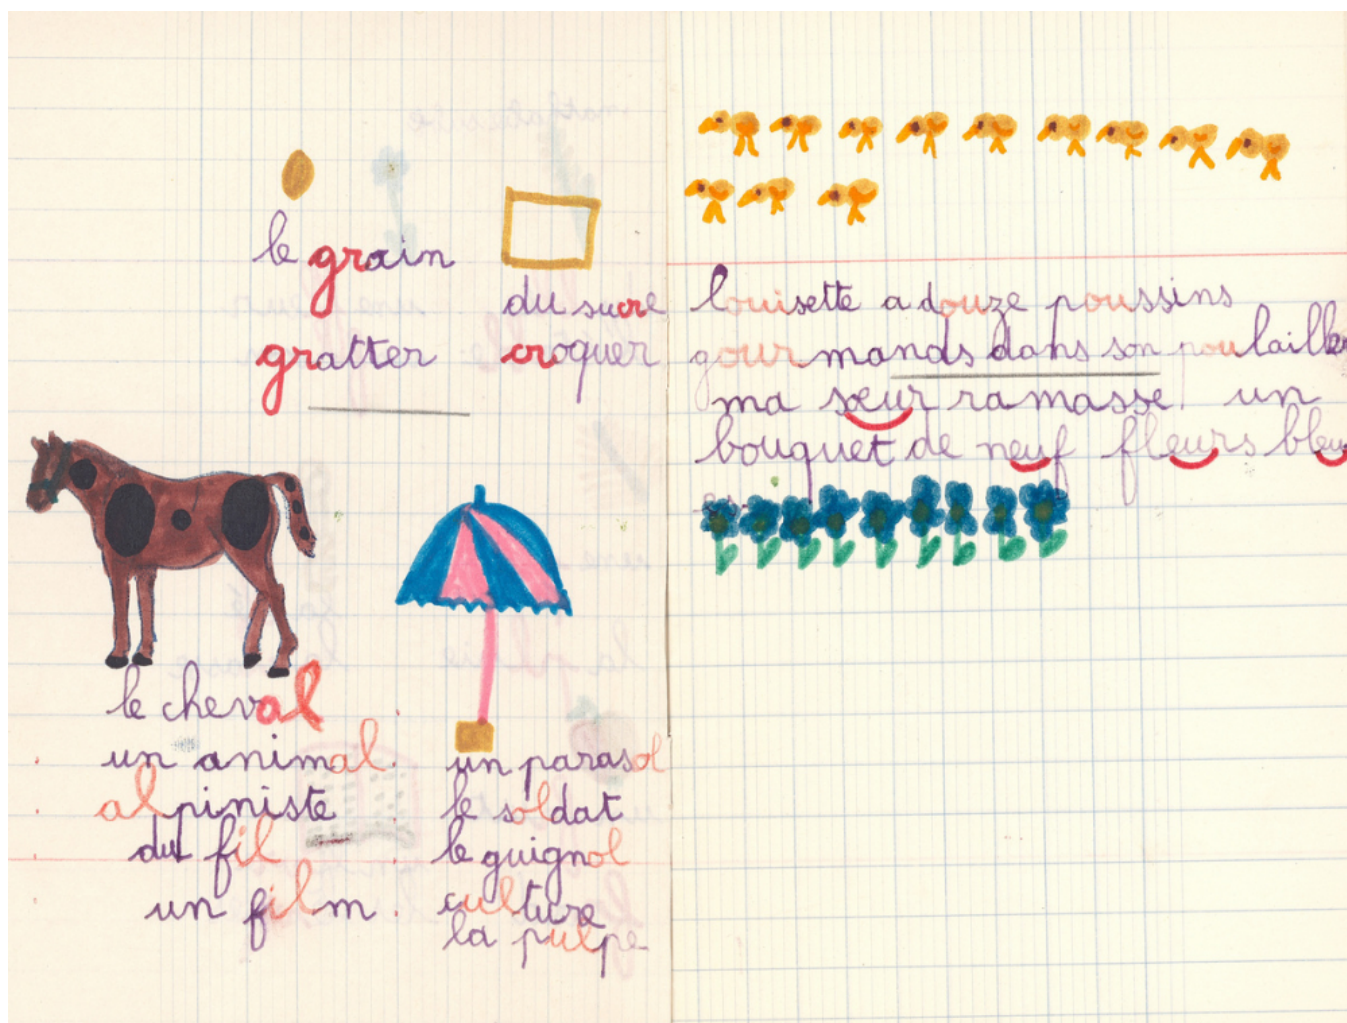 le grain
gratter
du sucre
croquer
le cheval
un animal.
alpiniste
du fil
un film.
un parasol
le soldat
le guignol
culture
la pulpe
louisette a douze poussins
gourmands dans son poulailler
ma sœur ramasse un
bouquet de neuf fleurs bleu
es.